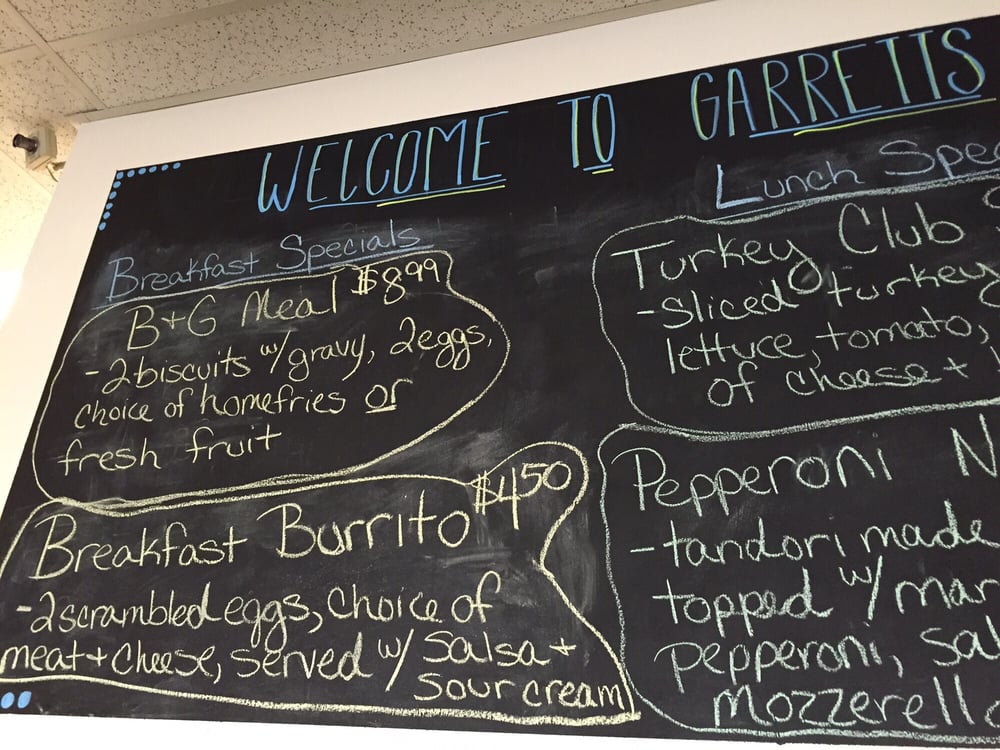 WELCOME TO GARRETTS
Breakfast Specials
B+G Meal $8.99
-2 biscuits w/gravy, 2 eggs,
choice of homefries or
fresh fruit
Breakfast Burrito $4.50
-2 scrambled eggs, choice of
meat + cheese, served w/ salsa +
sour cream
Lunch Spec
Turkey Club
-Sliced turkey
lettuce, tomato,
of cheese +
Pepperoni N
-tandori made
topped w/ mar
pepperoni, sal
mozzerella